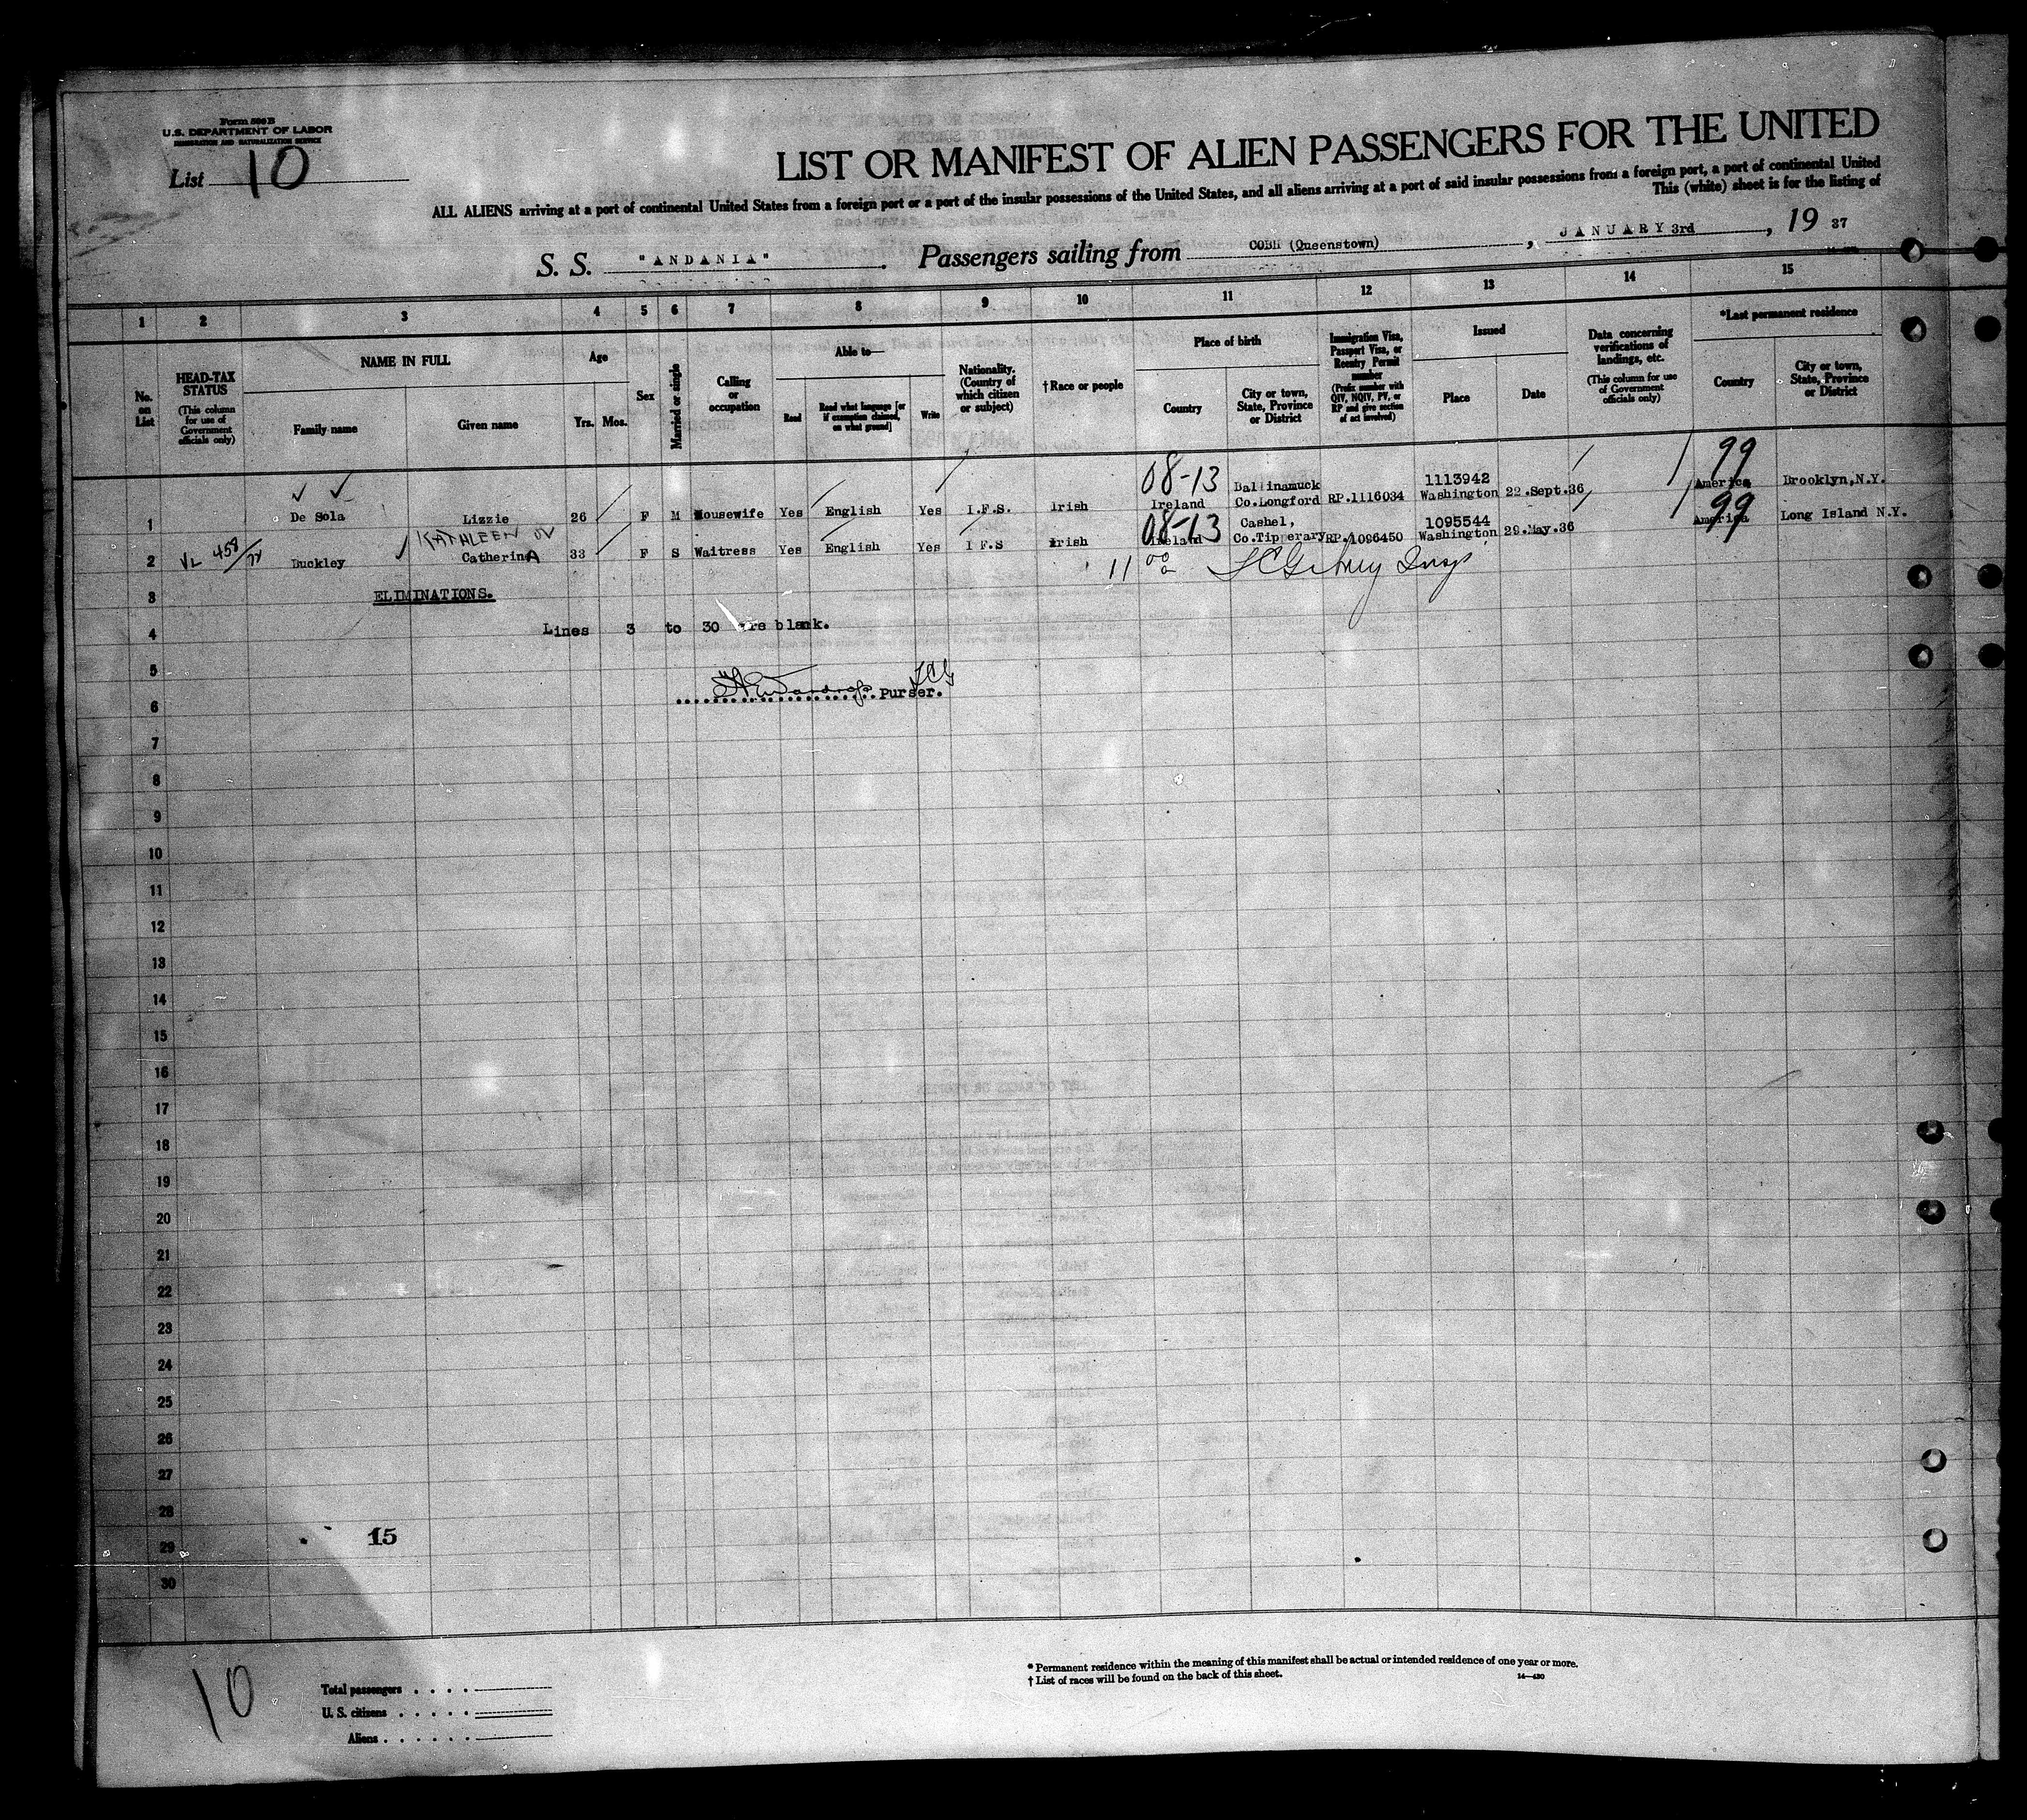 Form 500 B
U.S. DEPARTMENT OF LABOR
IMMIGRATION AND NATURALIZATION SERVICE
List 10
LIST OR MANIFEST OF ALIEN PASSENGERS FOR THE UNITED
ALL ALIENS arriving at a port of continental United States from a foreign port or a port of the insular possessions of the United States, and all aliens arriving at a port of said insular possessions from a foreign port, a port of continental United
This (white) sheet is for the listing of
S. S. "ANDANIA" Passengers sailing from COBH (Queenstown), JANUARY 3rd, 19 37
1 2 3 4 5 6 7 8 9 10 11 12 13 14 15
No. on List
HEAD-TAX STATUS
(This column for use of Government officials only)
NAME IN FULL
Family name
Given name
Age
Yrs. Mos.
Sex
Married or single
Calling or occupation
Able to—
Read
Read what language [or if exemption claimed, on what ground]
Write
Nationality. (Country of which citizen or subject)
†Race or people
Place of birth
Country
City or town, State, Province or District
Immigration Visa, Passport Visa, or Reentry Permit number
(Prefix number with QIV, NQIV, PV, or RP and give section of act involved)
Issued
Place
Date
Data concerning verifications of landings, etc.
(This column for use of Government officials only)
*Last permanent residence
Country
City or town, State, Province or District
08-13 99
Ballinamuck 1113942
1 De Sola Lizzie 26 F M Housewife Yes English Yes I.F.S. Irish Ireland Co.Longford RP.1116034 Washington 22.Sept.36 America Brooklyn,N.Y.
KATHLEEN 08-13 Cashel, 1095544 99
2 VL 458 Buckley CatherinA 33 F S Waitress Yes English Yes I F.S Irish Ireland Co.Tipperary RP.1096450 Washington 29.May.36 America Long Island N.Y.
11
3 ELIMINATIONS.
4 Lines 3 to 30 are blank.
5
6 Purser.
7
8
9
10
11
12
13
14
15
16
17
18
19
20
21
22
23
24
25
26
27
28
29 15
30
10
Total passengers
U. S. citizens
Aliens
* Permanent residence within the meaning of this manifest shall be actual or intended residence of one year or more.
† List of races will be found on the back of this sheet.
14—430